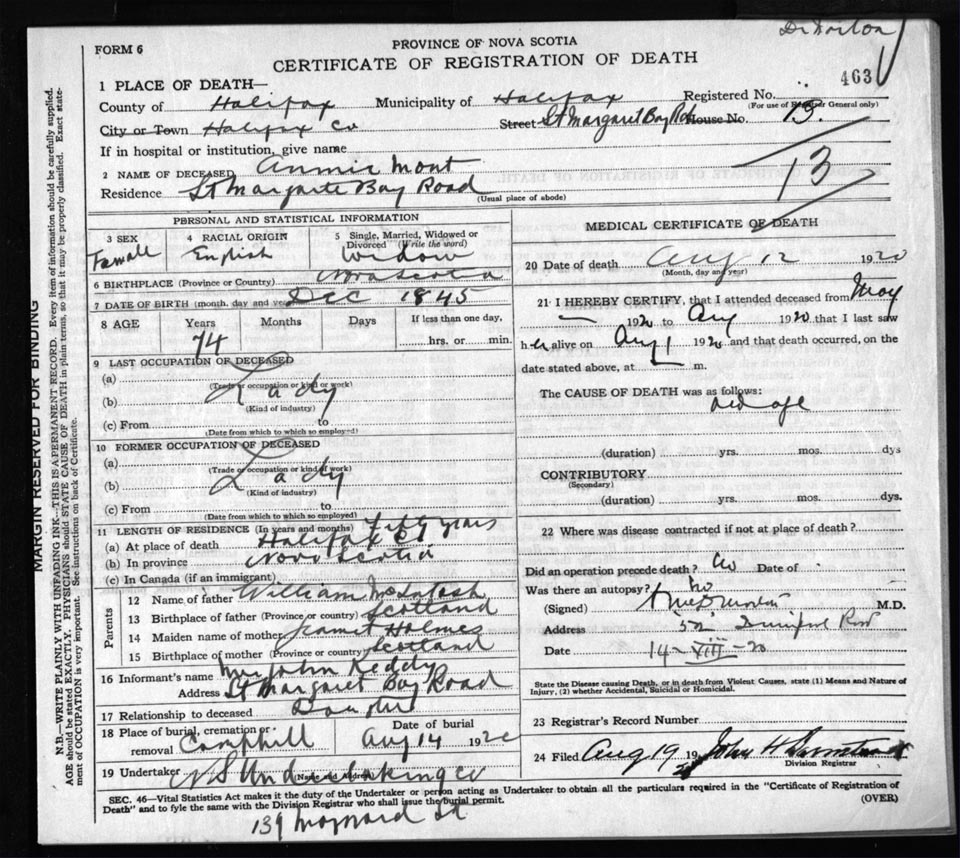 Dr Morton
FORM 6
PROVINCE OF NOVA SCOTIA
CERTIFICATE OF REGISTRATION OF DEATH
463
1 PLACE OF DEATH—
County of Halifax Municipality of Halifax Registered No.
(For use of Registrar General only)
City or Town Halifax Co Street St Margaret Bay Rd House No. 13.
If in hospital or institution, give name
2 NAME OF DECEASED Annie Mont
13
Residence St Margarte Bay Road
(Usual place of abode)
PERSONAL AND STATISTICAL INFORMATION
3 SEX 4 RACIAL ORIGIN 5 Single, Married, Widowed or Divorced (Write the word)
Famall English Widow
6 BIRTHPLACE (Province or Country) Nova Scotia
7 DATE OF BIRTH (month, day and year) Dec 1845
8 AGE Years Months Days If less than one day,
74 hrs. or min.
9 LAST OCCUPATION OF DECEASED
(a) Lady
(Trade or occupation or kind or work)
(b)
(Kind of industry)
(c) From to
(Date from which to which so employed)
10 FORMER OCCUPATION OF DECEASED
(a) Lady
(Trade or occupation or kind of work)
(b)
(Kind of industry)
(c) From to
(Date from which to which so employed)
11 LENGTH OF RESIDENCE (In years and months) Fifty years
(a) At place of death Halifax
(b) In province Nova Scotia
(c) In Canada (if an immigrant)
Parents
12 Name of father William McIntosh
13 Birthplace of father (Province or country) Scotland
14 Maiden name of mother Jannet Holmes
15 Birthplace of mother (Province or country) Scotland
16 Informant's name Mrs John Keddy
Address St Margaret Bay Road
17 Relationship to deceased Daughter
18 Place of burial, cremation or removal Camphill Date of burial Aug 14 1920
19 Undertaker N S Undertaking Co
(Name and address)
MEDICAL CERTIFICATE OF DEATH
20 Date of death Aug 12 1920
(Month, day and year)
21 I HEREBY CERTIFY, that I attended deceased from May
— 1920 to Aug 1920 that I last saw
her alive on Aug 1 1920 and that death occurred, on the
date stated above, at m.
The CAUSE OF DEATH was as follows:
old age
(duration) yrs. mos. dys
CONTRIBUTORY
(Secondary)
(duration) yrs. mos. dys.
22 Where was disease contracted if not at place of death?
Did an operation precede death? No Date of
Was there an autopsy? No
(Signed) M.D.
Address 52
Date 14-VIII-20
State the Disease causing Death, or in death from Violent Causes, state (1) Means and Nature of
Injury, (2) whether Accidental, Suicidal or Homicidal.
23 Registrar's Record Number
24 Filed Aug 19 19 20 John H
Division Registrar
SEC. 46—Vital Statistics Act makes it the duty of the Undertaker or person acting as Undertaker to obtain all the particulars required in the "Certificate of Registration of
Death" and to fyle the same with the Division Registrar who shall issue the burial permit.
(OVER)
139 Maynard St
MARGIN RESERVED FOR BINDING
N.B.—WRITE PLAINLY WITH UNFADING INK—THIS IS A PERMANENT RECORD. Every item of information should be carefully supplied.
AGE should be stated EXACTLY. PHYSICIANS should STATE CAUSE OF DEATH in plain terms, so that it may be properly classified. Exact state-
ment of OCCUPATION is very important. See instructions on back of Certificate.